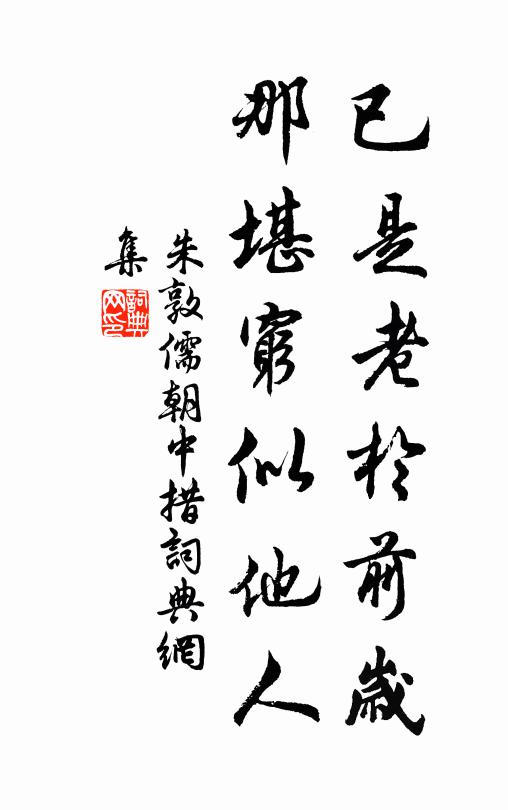 已是老於前歲
那堪窮似他人
朱敦儒朝中措詞典網
集
詞典網印